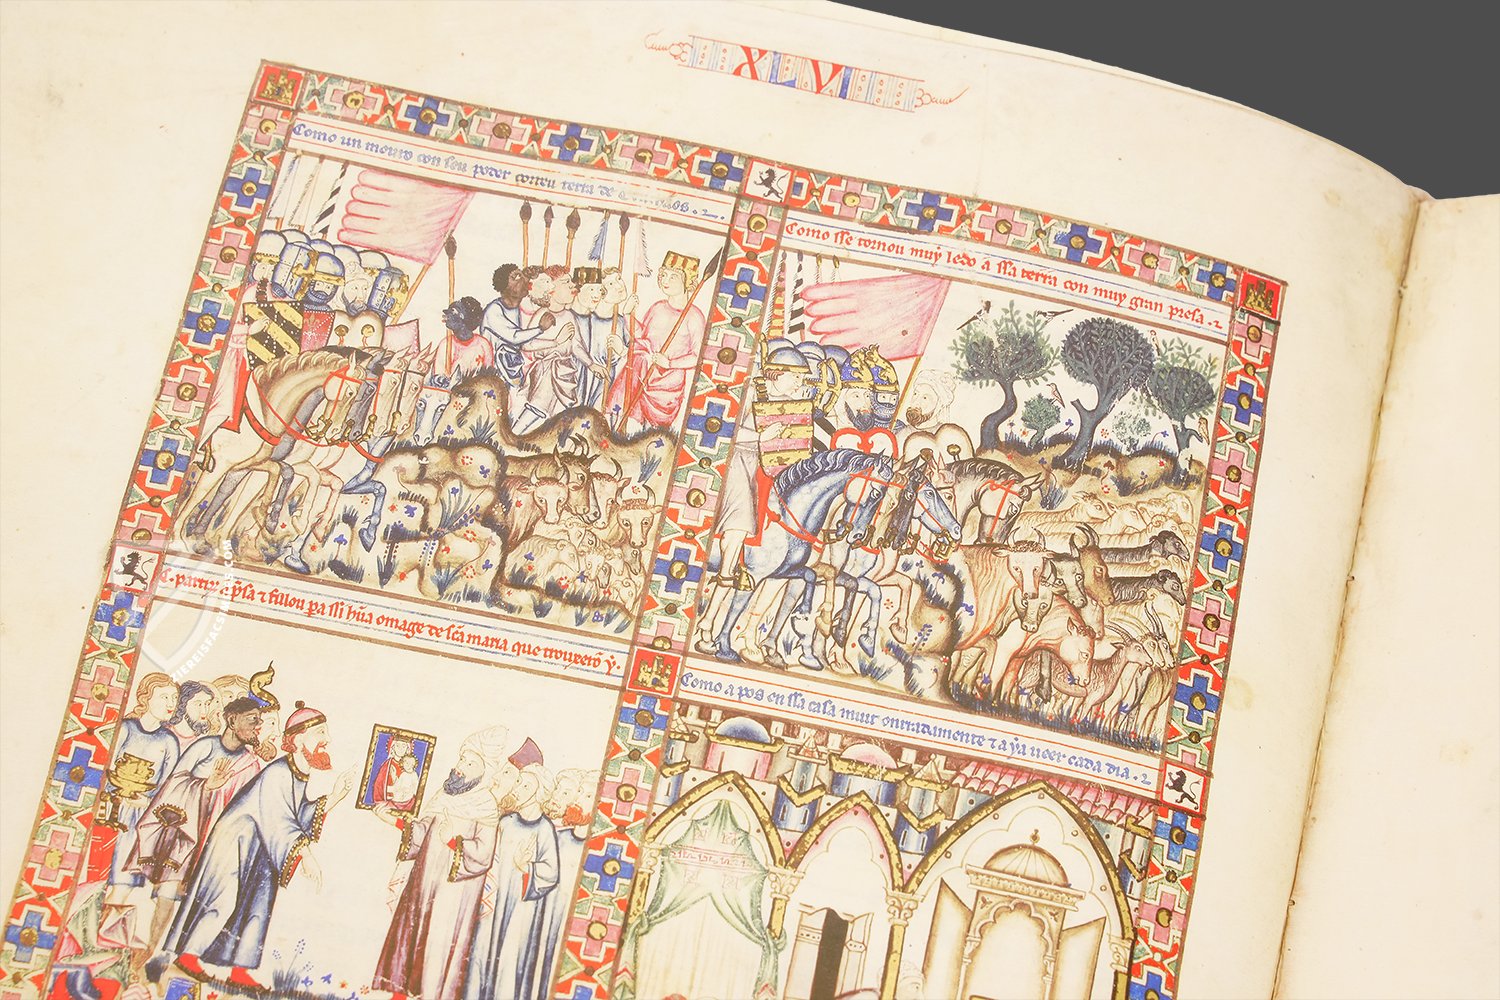 XLVI
Como un mouro con seu poder correu terra de
Como sse tornou muy ledo a ssa terra con muy gran presa.
partir e fillou pa ssi hũa omage de sca maria que trouxerõ y.
Como a pos en ssa casa muit onrradamente ⁊ a ya ueer cada dia.